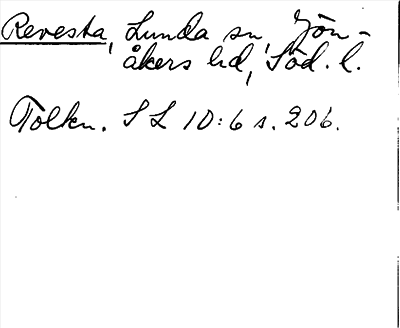 Revesta, Lunda sn, Jön-
åkers hd, Söd. l.
Tolkn. S L 10:6 s. 206.